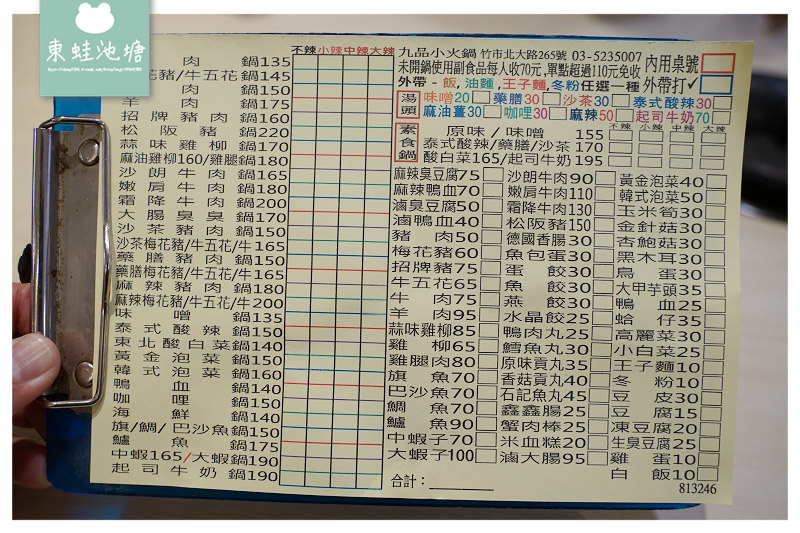 東蛙池塘
不辣 小辣 中辣 大辣
肉鍋135
花豬/牛五花鍋145
肉鍋150
羊肉鍋175
招牌豬肉鍋160
松阪豬鍋220
蒜味雞柳鍋170
麻油雞柳160/雞腿鍋180
沙朗牛肉鍋165
嫩肩牛肉鍋180
霜降牛肉鍋200
大腸臭臭鍋170
沙茶豬肉鍋150
沙茶梅花豬/牛五花/牛165
藥膳豬肉鍋150
藥膳梅花豬/牛五花/牛165
麻辣豬肉鍋180
麻辣梅花豬/牛五花/牛200
味噌鍋135
泰式酸辣鍋150
東北酸白菜鍋140
黃金泡菜鍋150
韓式泡菜鍋160
鴨血鍋140
咖哩鍋150
海鮮鍋140
旗/鯛/巴沙魚鍋150
鱸魚鍋175
中蝦165/大蝦鍋190
起司牛奶鍋190
九品小火鍋 竹市北大路265號 03-5235007
未開鍋使用副食品每人收70元,單點超過110元免收
外帶-飯,油麵,王子麵,冬粉任選一種
內用桌號
外帶打✓
湯頭 味噌20 藥膳30 沙茶30 泰式酸辣30
麻油薑30 咖哩30 麻辣50 起司牛奶70
素食鍋 原味/味噌 155
泰式酸辣/藥膳/沙茶170
酸白菜165/起司牛奶195
不辣 小辣 中辣 大辣
麻辣臭豆腐75 沙朗牛肉90 黃金泡菜40
麻辣鴨血70 嫩肩牛肉110 韓式泡菜50
滷臭豆腐50 霜降牛肉130 玉米筍30
滷鴨血40 松阪豬150 金針菇30
豬肉50 德國香腸30 杏鮑菇30
梅花豬60 魚包蛋30 黑木耳30
招牌豬75 蛋餃30 鳥蛋30
牛五花65 魚餃30 大甲芋頭35
牛肉75 燕餃30 鴨血25
羊肉95 水晶餃25 蛤仔35
蒜味雞柳85 鴨肉丸25 高麗菜30
雞柳65 鱈魚丸30 小白菜25
雞腿肉80 原味貢丸35 王子麵10
旗魚70 香菇貢丸40 冬粉10
巴沙魚70 石記魚丸45 豆皮30
鯛魚70 鑫鑫腸25 豆腐15
鱸魚90 蟹肉棒25 凍豆腐20
中蝦子70 米血糕20 生臭豆腐25
大蝦子100 滷大腸95 雞蛋10
白飯10
合計:
813246